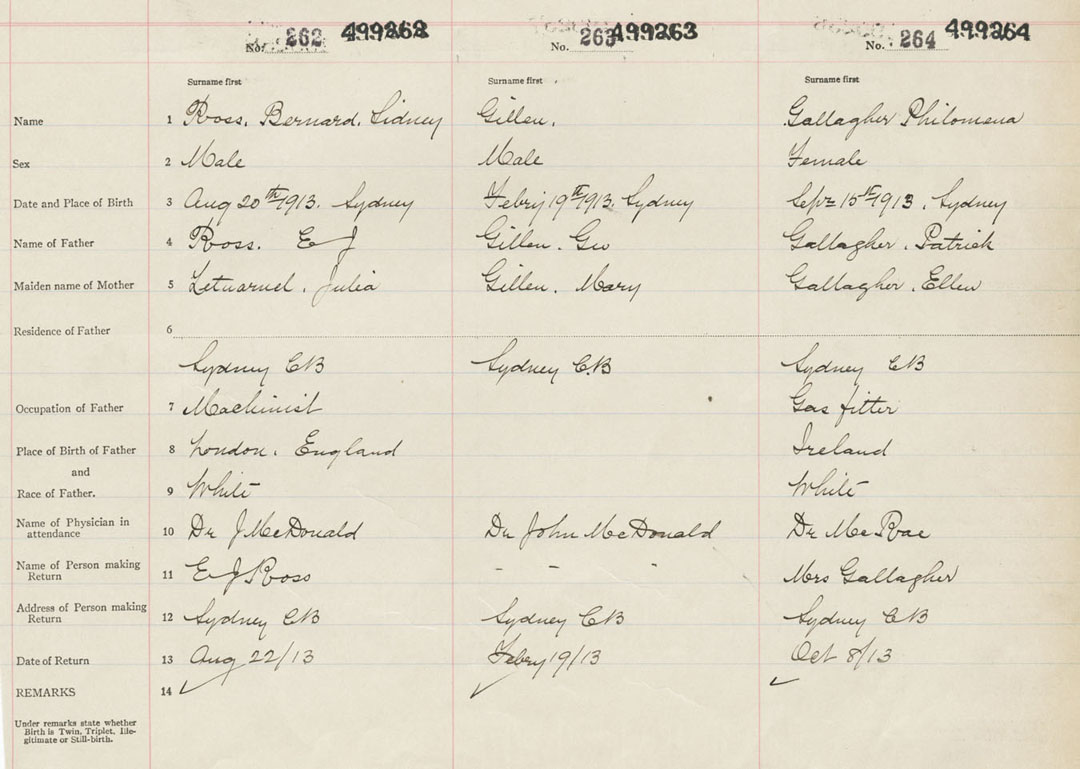 No. 262 499262 No. 263 499263 No. 264 499264
Surname first Surname first Surname first
Name 1 Ross. Bernard. Sidney Gillen. Gallagher Philomena
Sex 2 Male Male Female
Date and Place of Birth 3 Aug 20th 1913. Sydney Febry 19th 1913. Sydney Sept 15th 1913. Sydney
Name of Father 4 Ross. E J Gillen. Geo Gallagher. Patrick
Maiden name of Mother 5 Julia Gillen. Mary Gallagher. Ellen
Residence of Father 6
Sydney CB Sydney C.B Sydney CB
Occupation of Father 7 Machinist Gas fitter
Place of Birth of Father 8 London. England Ireland
and
Race of Father. 9 White White
Name of Physician in
attendance 10 Dr J McDonald Dr John McDonald Dr McRae
Name of Person making
Return 11 E J Ross - - - Mrs Gallagher
Address of Person making
Return 12 Sydney CB Sydney CB Sydney CB
Date of Return 13 Aug 22/13 Febry 19/13 Oct 8/13
REMARKS 14
Under remarks state whether
Birth is Twin, Triplet, Ille-
gitimate or Still-birth.